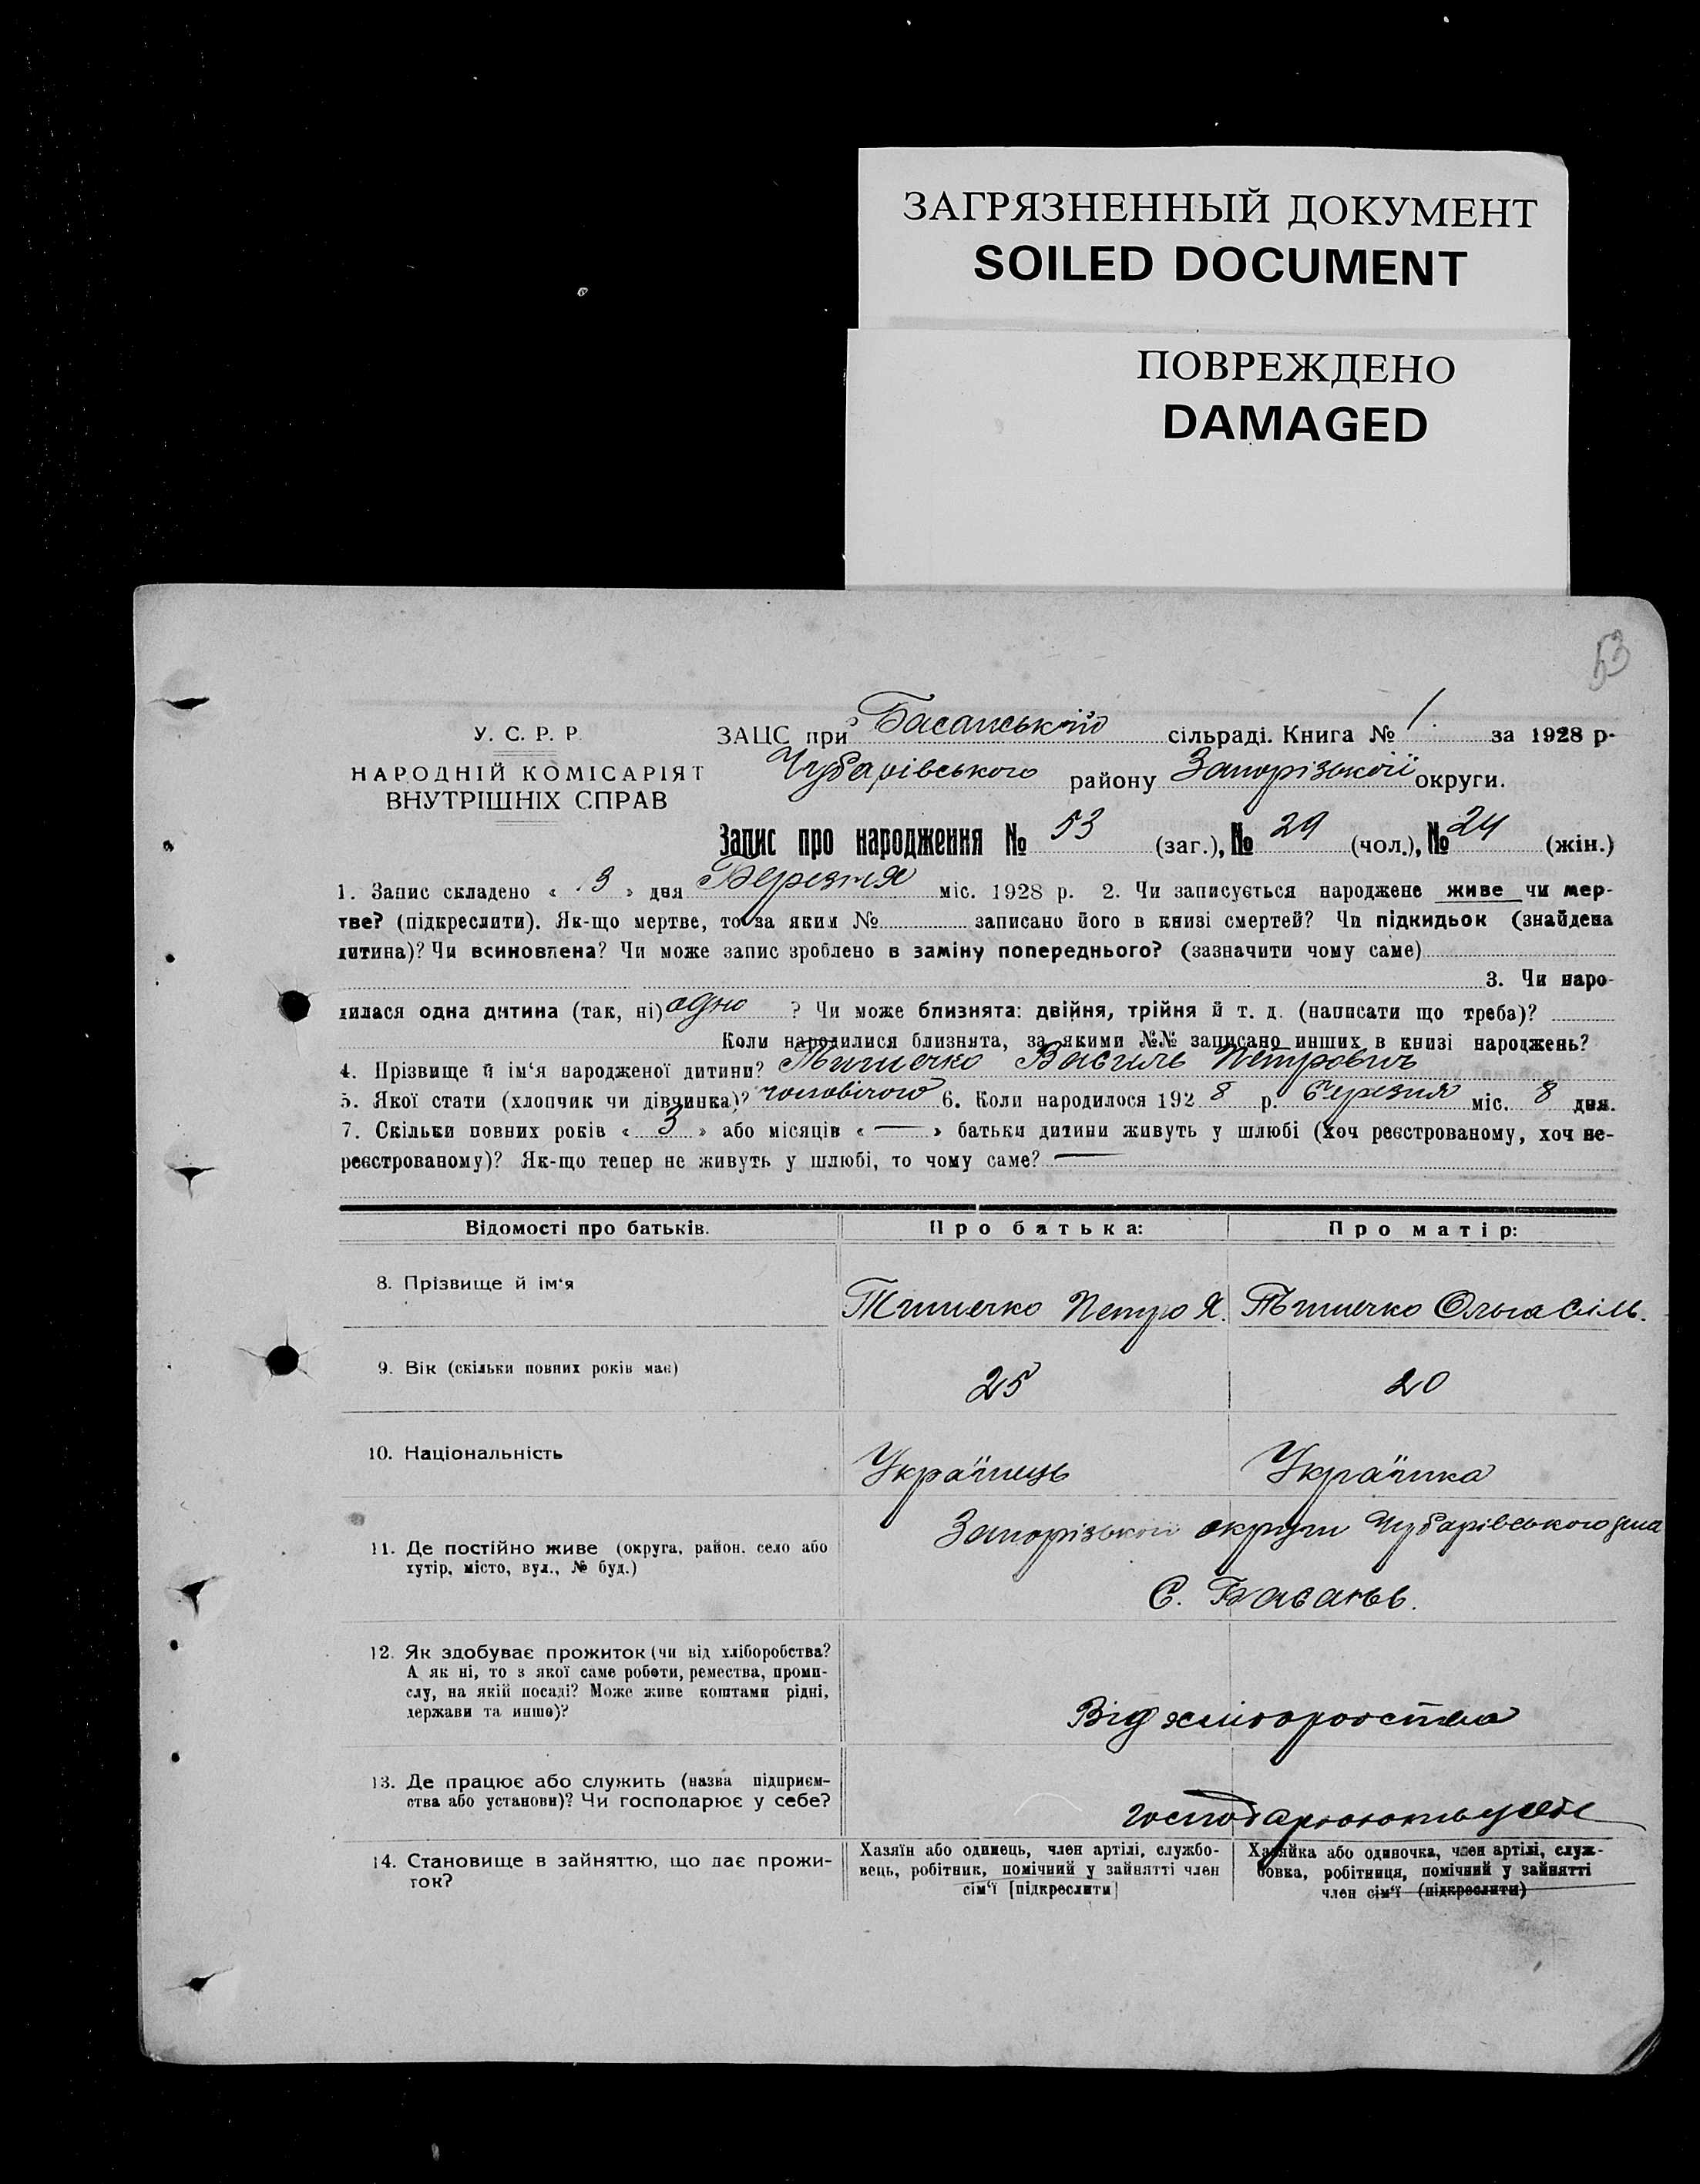 ЗАГРЯЗНЕННЫЙ ДОКУМЕНТ
SOILED DOCUMENT
ПОВРЕЖДЕНО
DAMAGED
53
У. С. Р. Р.
НАРОДНІЙ КОМІСАРІЯТ
ВНУТРІШНІХ СПРАВ
ЗАЦС при Басанській сільраді. Книга № 1 за 1928 р.
Чубарівського району Запорізької округи.
Запис про народження № 53 (заг.), № 29 (чол.), № 24 (жін.)
1. Запис складено « 13 » дня Березня міс. 1928 р. 2. Чи записується народжене живе чи мер-
тве? (підкреслити). Як-що мертве, то за яким № записано його в книзі смертей? Чи підкидьок (знайдена
дитина)? Чи всиновлена? Чи може запис зроблено в заміну попереднього? (зазначити чому саме)
3. Чи наро-
дилася одна дитина (так, ні) одно ? Чи може близнята: двійня, трійня й т. д. (написати що треба)?
Коли народилися близнята, за якими №№ записано инших в книзі народжень?
4. Прізвище й ім'я народженої дитини? Василь Петрович
5. Якої стати (хлопчик чи дівчинка)? чоловічого 6. Коли народилося 192 8 р. Березня міс. 8 дня.
7. Скільки повних років « 3 » або місяців « — » батьки дитини живуть у шлюбі (хоч реєстрованому, хоч не-
реєстрованому)? Як-що тепер не живуть у шлюбі, то чому саме? —
Відомості про батьків. Про батька: Про матір:
8. Прізвище й ім'я
Петро Я. Ольга
9. Вік (скільки повних років має)
25 20
10. Національність
Українець Українка
11. Де постійно живе (округа, район, село або
хутір, місто, вул., № буд.)
Запорізької округи Чубарівського
С. Басань.
12. Як здобуває прожиток (чи від хліборобства?
А як ні, то з якої саме роботи, ремества, проми-
слу, на якій посаді? Може живе коштами рідні,
держави та инше)?
Від хліборобства
13. Де працює або служить (назва підприєм-
ства або установи)? Чи господарює у себе?
господарюють у себе
14. Становище в зайняттю, що дає прожи-
ток?
Хазяїн або одинець, член артілі, службо-
вець, робітник, помічний у зайнятті член
сім'ї [підкреслити]
Хазяйка або одиночка, член артілі, служ-
бовка, робітниця, помічний у зайнятті
член сім'ї (підкреслити)